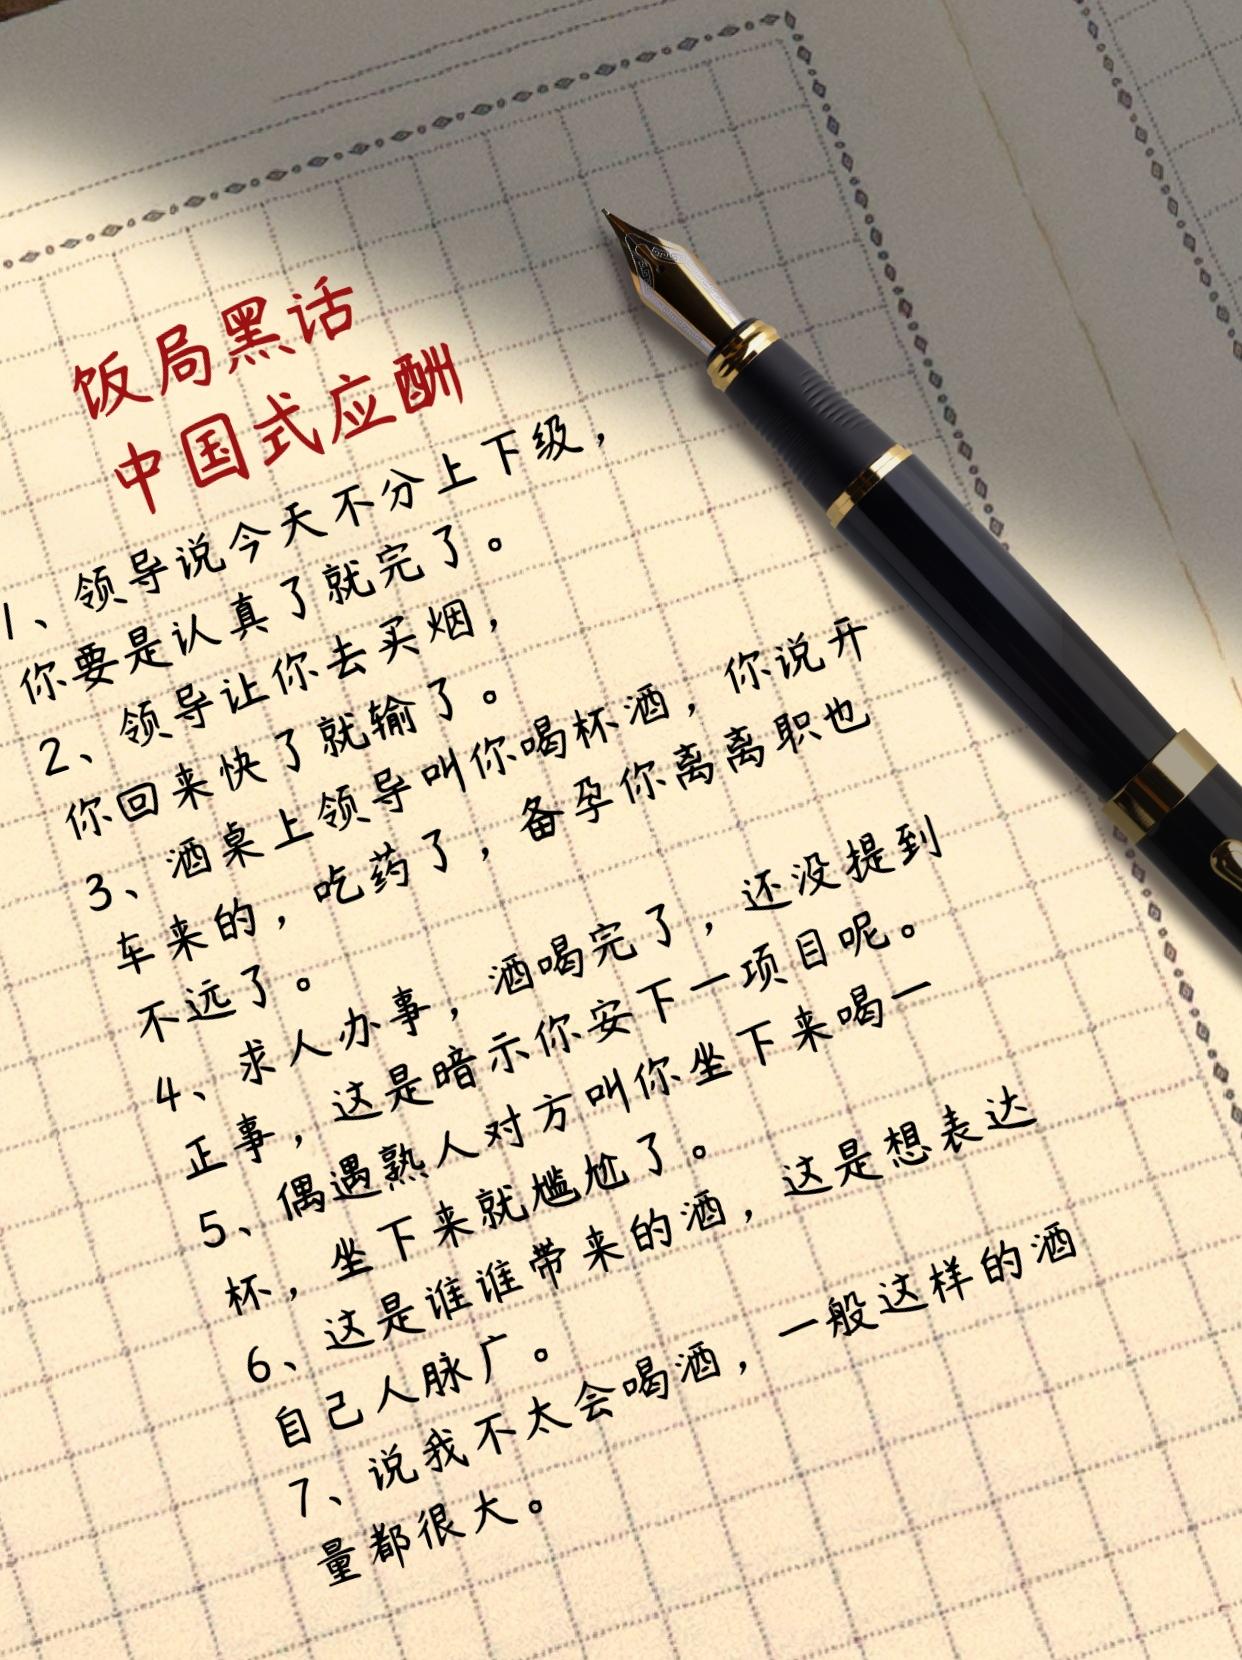 饭局黑话
中国式应酬
1、领导说今天不分上下级，
你要是认真了就完了。
2、领导让你去买烟，
你回来快了就输了。
3、酒桌上领导叫你喝杯酒，你说开
车来的，吃药了，备孕你离离职也
不远了。
4、求人办事，酒喝完了，还没提到
正事，这是暗示你安下一项目呢。
5、偶遇熟人对方叫你坐下来喝一
杯，坐下来就尴尬了。
6、这是谁谁带来的酒，这是想表达
自己人脉广。
7、说我不太会喝酒，一般这样的酒
量都很大。